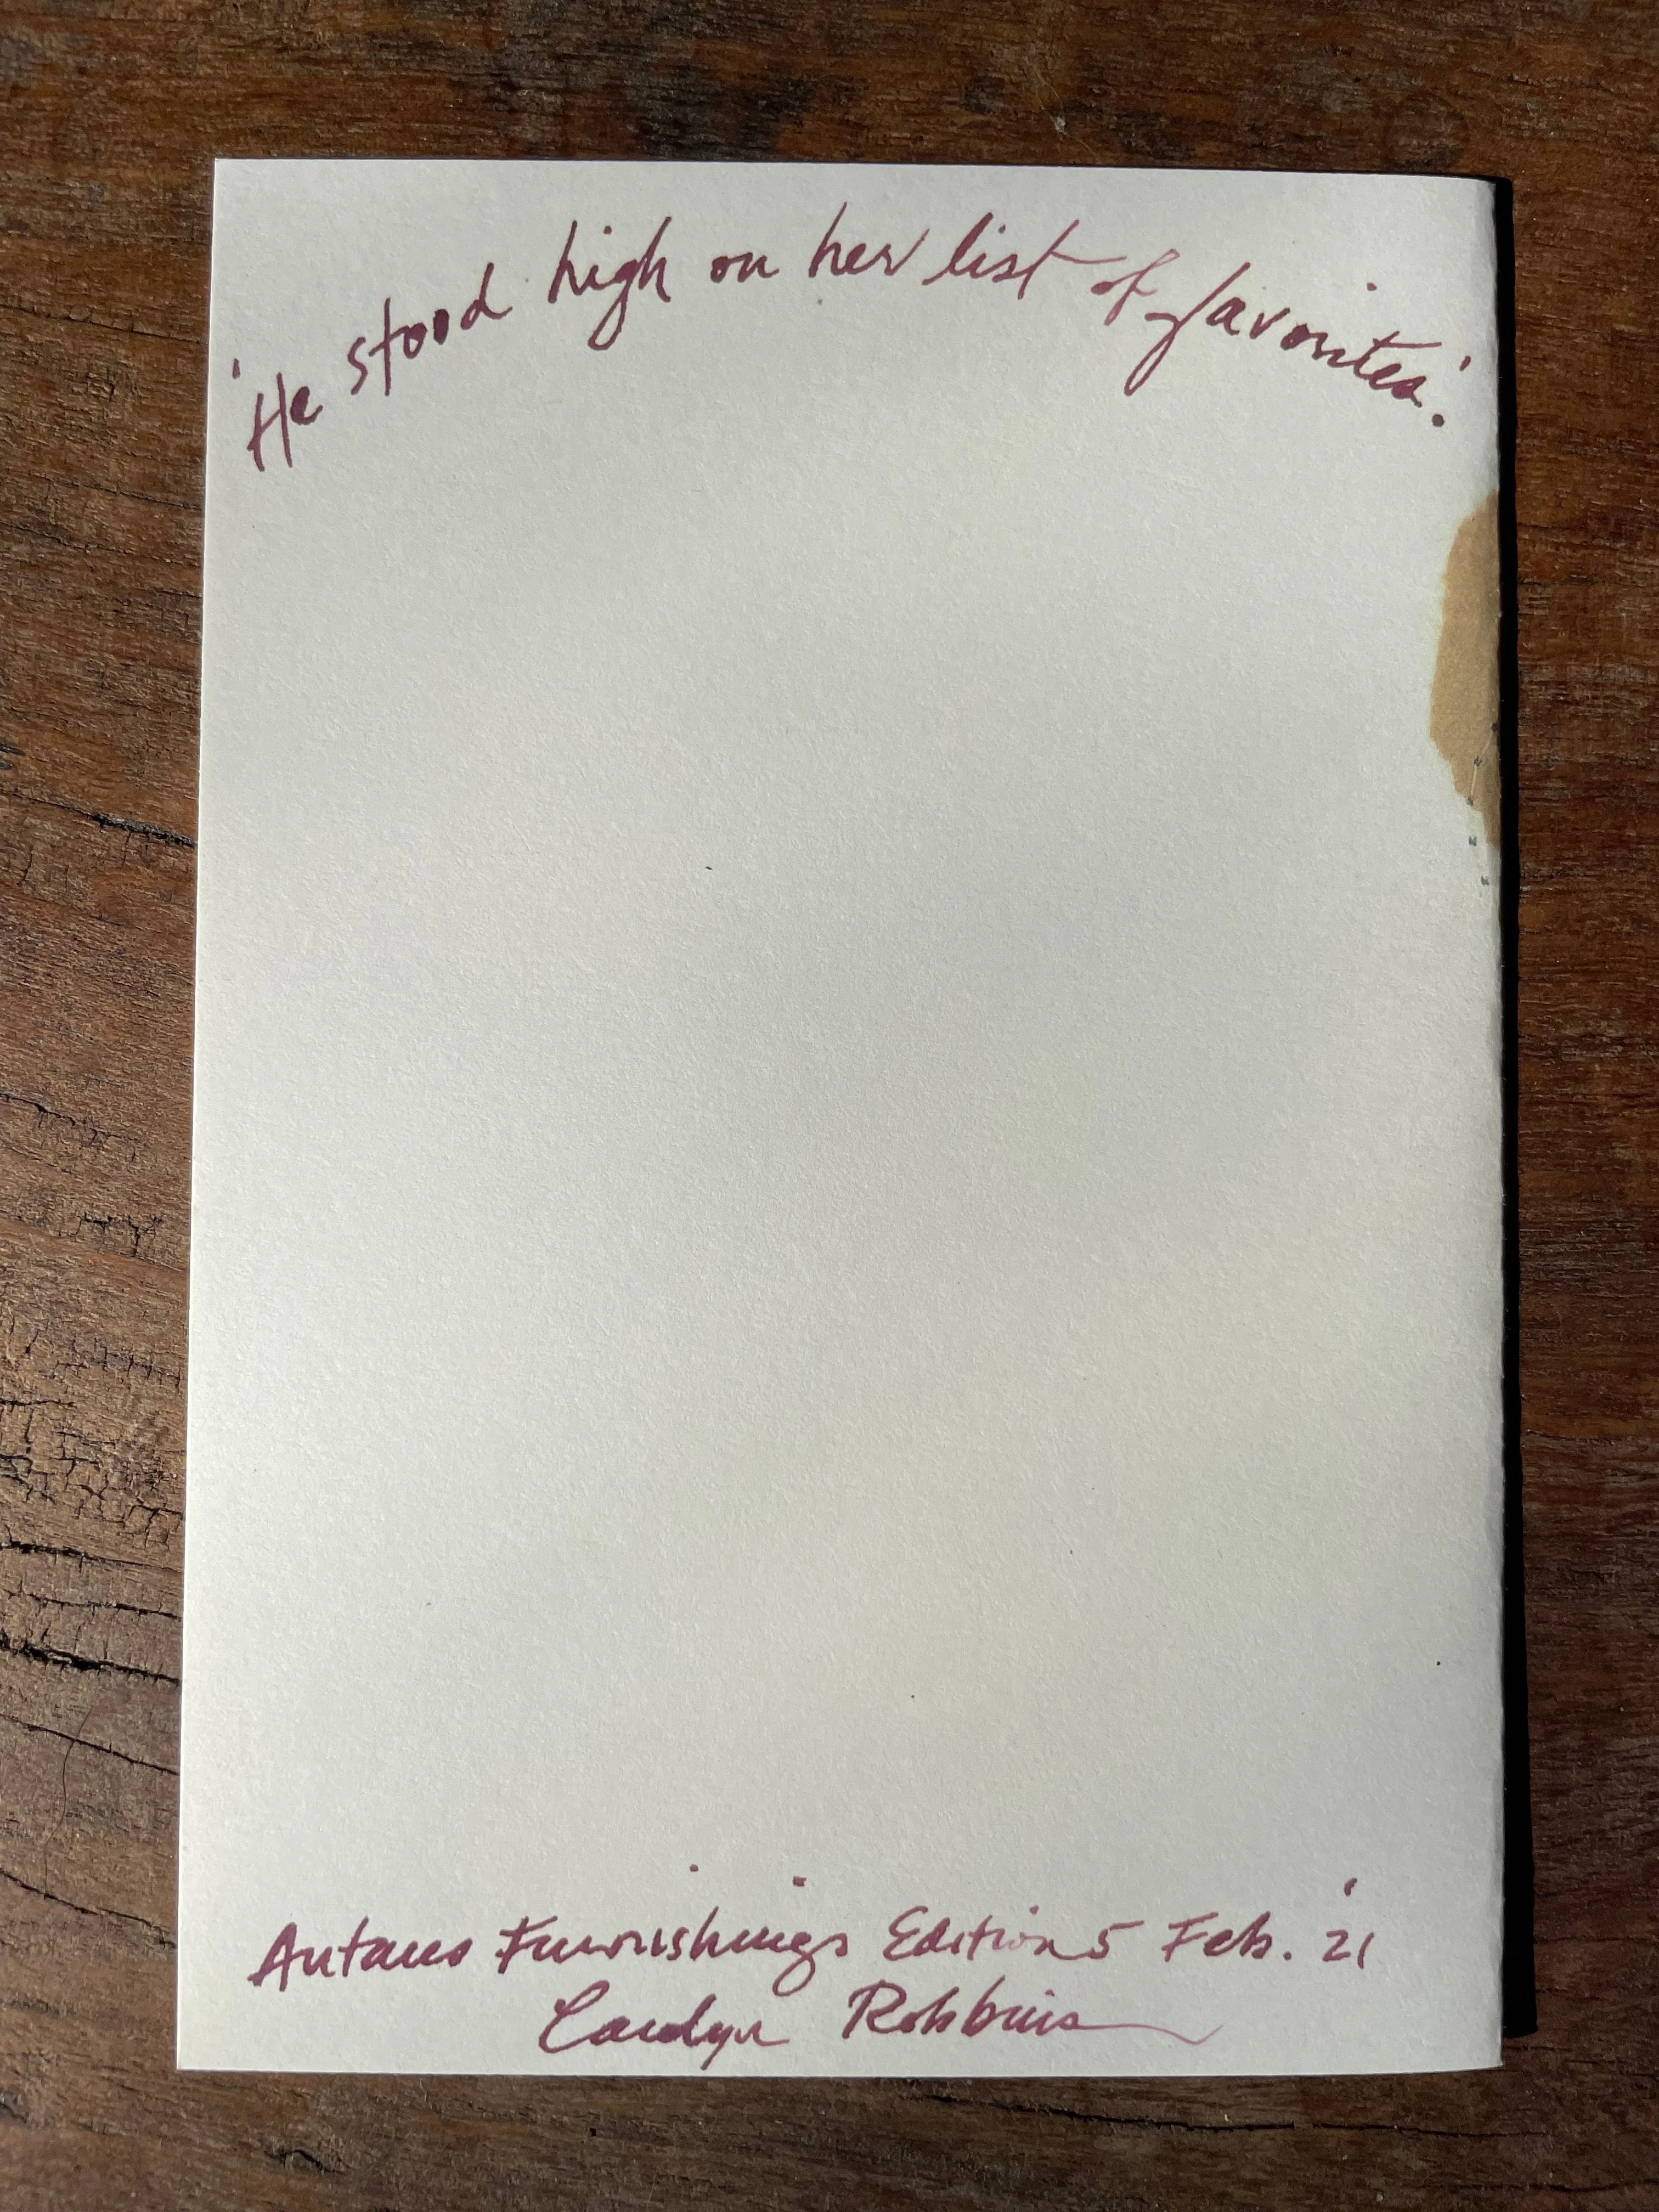 'He stood high on her list of favorites'.
Autans Furnishings Edition 5 Feb. '21
Carolyn Robbins